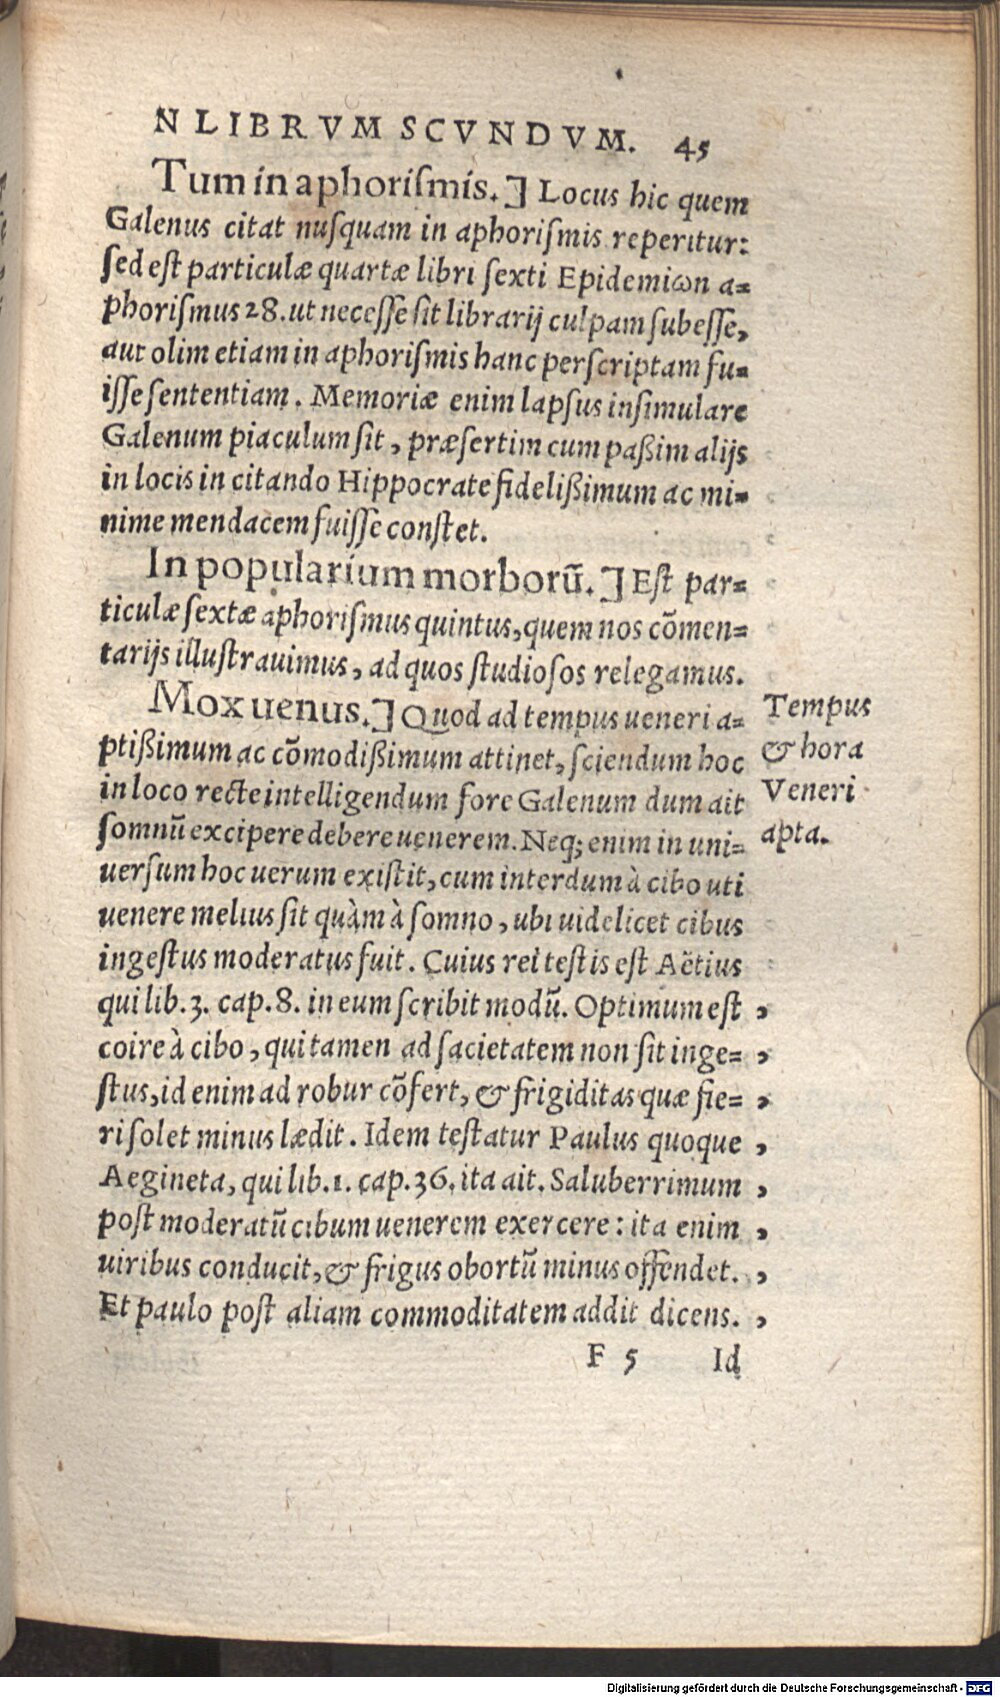 N LIBRVM SCVNDVM. 45
Tum in aphoriſmis.] Locus hic quem
Galenus citat nuſquam in aphoriſmis reperitur:
ſed eſt particulæ quartæ libri ſexti Epidemiωn a=
phoriſmus 28. ut neceſſe ſit librarij culpam ſubeſſe,
aut olim etiam in aphoriſmis hanc perſcriptam fu=
iſſe ſententiam. Memoriæ enim lapſus inſimulare
Galenum piaculum ſit, præſertim cum paßim alijs
in locis in citando Hippocrate fidelißimum ac mi=
nime mendacem fuiſſe conſtet.
In popularium morborũ.] Eſt par=
ticulæ ſextæ aphoriſmus quintus, quem nos cõmen=
tarijs illuſtrauimus, ad quos ſtudioſos relegamus.
Mox uenus.] Quod ad tempus ueneri a=
ptißimum ac cõmodißimum attinet, ſciendum hoc
in loco recte intelligendum fore Galenum dum ait
ſomnũ excipere debere uenerem. Neq; enim in uni=
uerſum hoc uerum exiſtit, cum interdum à cibo uti
uenere melius ſit quàm à ſomno, ubi uidelicet cibus
ingeſtus moderatus fuit. Cuius rei teſtis eſt Aëtius
qui lib. 3. cap. 8. in eum ſcribit modũ. Optimum eſt ,
coire à cibo, qui tamen ad ſacietatem non ſit inge= ,
ſtus, id enim ad robur cõfert, & frigiditas quæ fie= ,
ri ſolet minus lædit. Idem teſtatur Paulus quoque ,
Aegineta, qui lib. 1. cap. 36. ita ait. Saluberrimum ,
poſt moderatũ cibum uenerem exercere: ita enim ,
uiribus conducit, & frigus obortũ minus offendet. ,
Et paulo poſt aliam commoditatem addit dicens. ,
F 5 Id
Tempus
& hora
Veneri
apta.
Digitalisierung gefördert durch die Deutsche Forschungsgemeinschaft - DFG